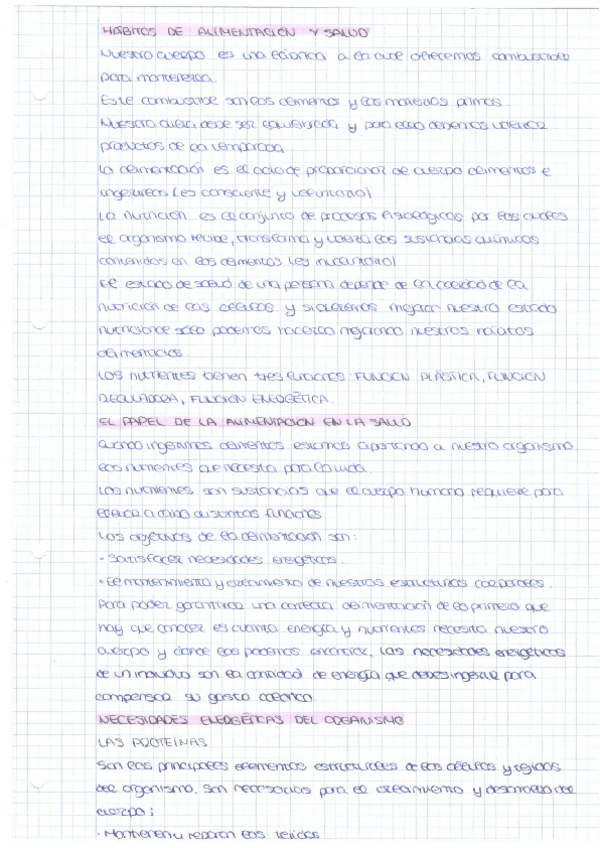 HÁBITOS DE ALIMENTACIÓN Y SALUD
Nuestro cuerpo es una fábrica a la que ofrecemos combustible
para mantenerla.
Este combustible son los alimentos y las materias primas.
Nuestra dieta debe ser equilibrada y para ello debemos utilizar
productos de la temporada.
La alimentación es el acto de proporcionar al cuerpo alimentos e
ingerirlos (es consciente y voluntario)
La nutrición es el conjunto de procesos fisiológicos por los cuales
el organismo recibe, transforma y utiliza las sustancias químicas
contenidas en los alimentos (es involuntario)
El estado de salud de una persona depende de la calidad de la
nutrición de las células y si queremos mejorar nuestro estado
nutricional sólo podemos hacerlo mejorando nuestros hábitos
alimenticios.
Los nutrientes tienen tres funciones: FUNCIÓN PLÁSTICA, FUNCIÓN
REGULADORA, FUNCIÓN ENERGÉTICA.
EL PAPEL DE LA ALIMENTACIÓN EN LA SALUD
Cuando ingerimos alimentos estamos aportando a nuestro organismo
los nutrientes que necesita para la vida.
Los nutrientes son sustancias que el cuerpo humano requiere para
llevar a cabo distintas funciones
Los objetivos de la alimentación son:
· Satisfacer necesidades energéticas.
· El mantenimiento y crecimiento de nuestras estructuras corporales.
Para poder garantizar una correcta alimentación lo primero que
hay que conocer es cuánta energía y nutrientes necesita nuestro
cuerpo y dónde los podemos encontrar, las necesidades energéticas
de un individuo son la cantidad de energía que debes ingerir para
compensar su gasto calórico.
NECESIDADES ENERGÉTICAS DEL ORGANISMO
LAS PROTEINAS
Son los principales elementos estructurales de las células y tejidos
del organismo. Son necesarios para el crecimiento y desarrollo del
cuerpo:
· Mantienen y reparan los tejidos